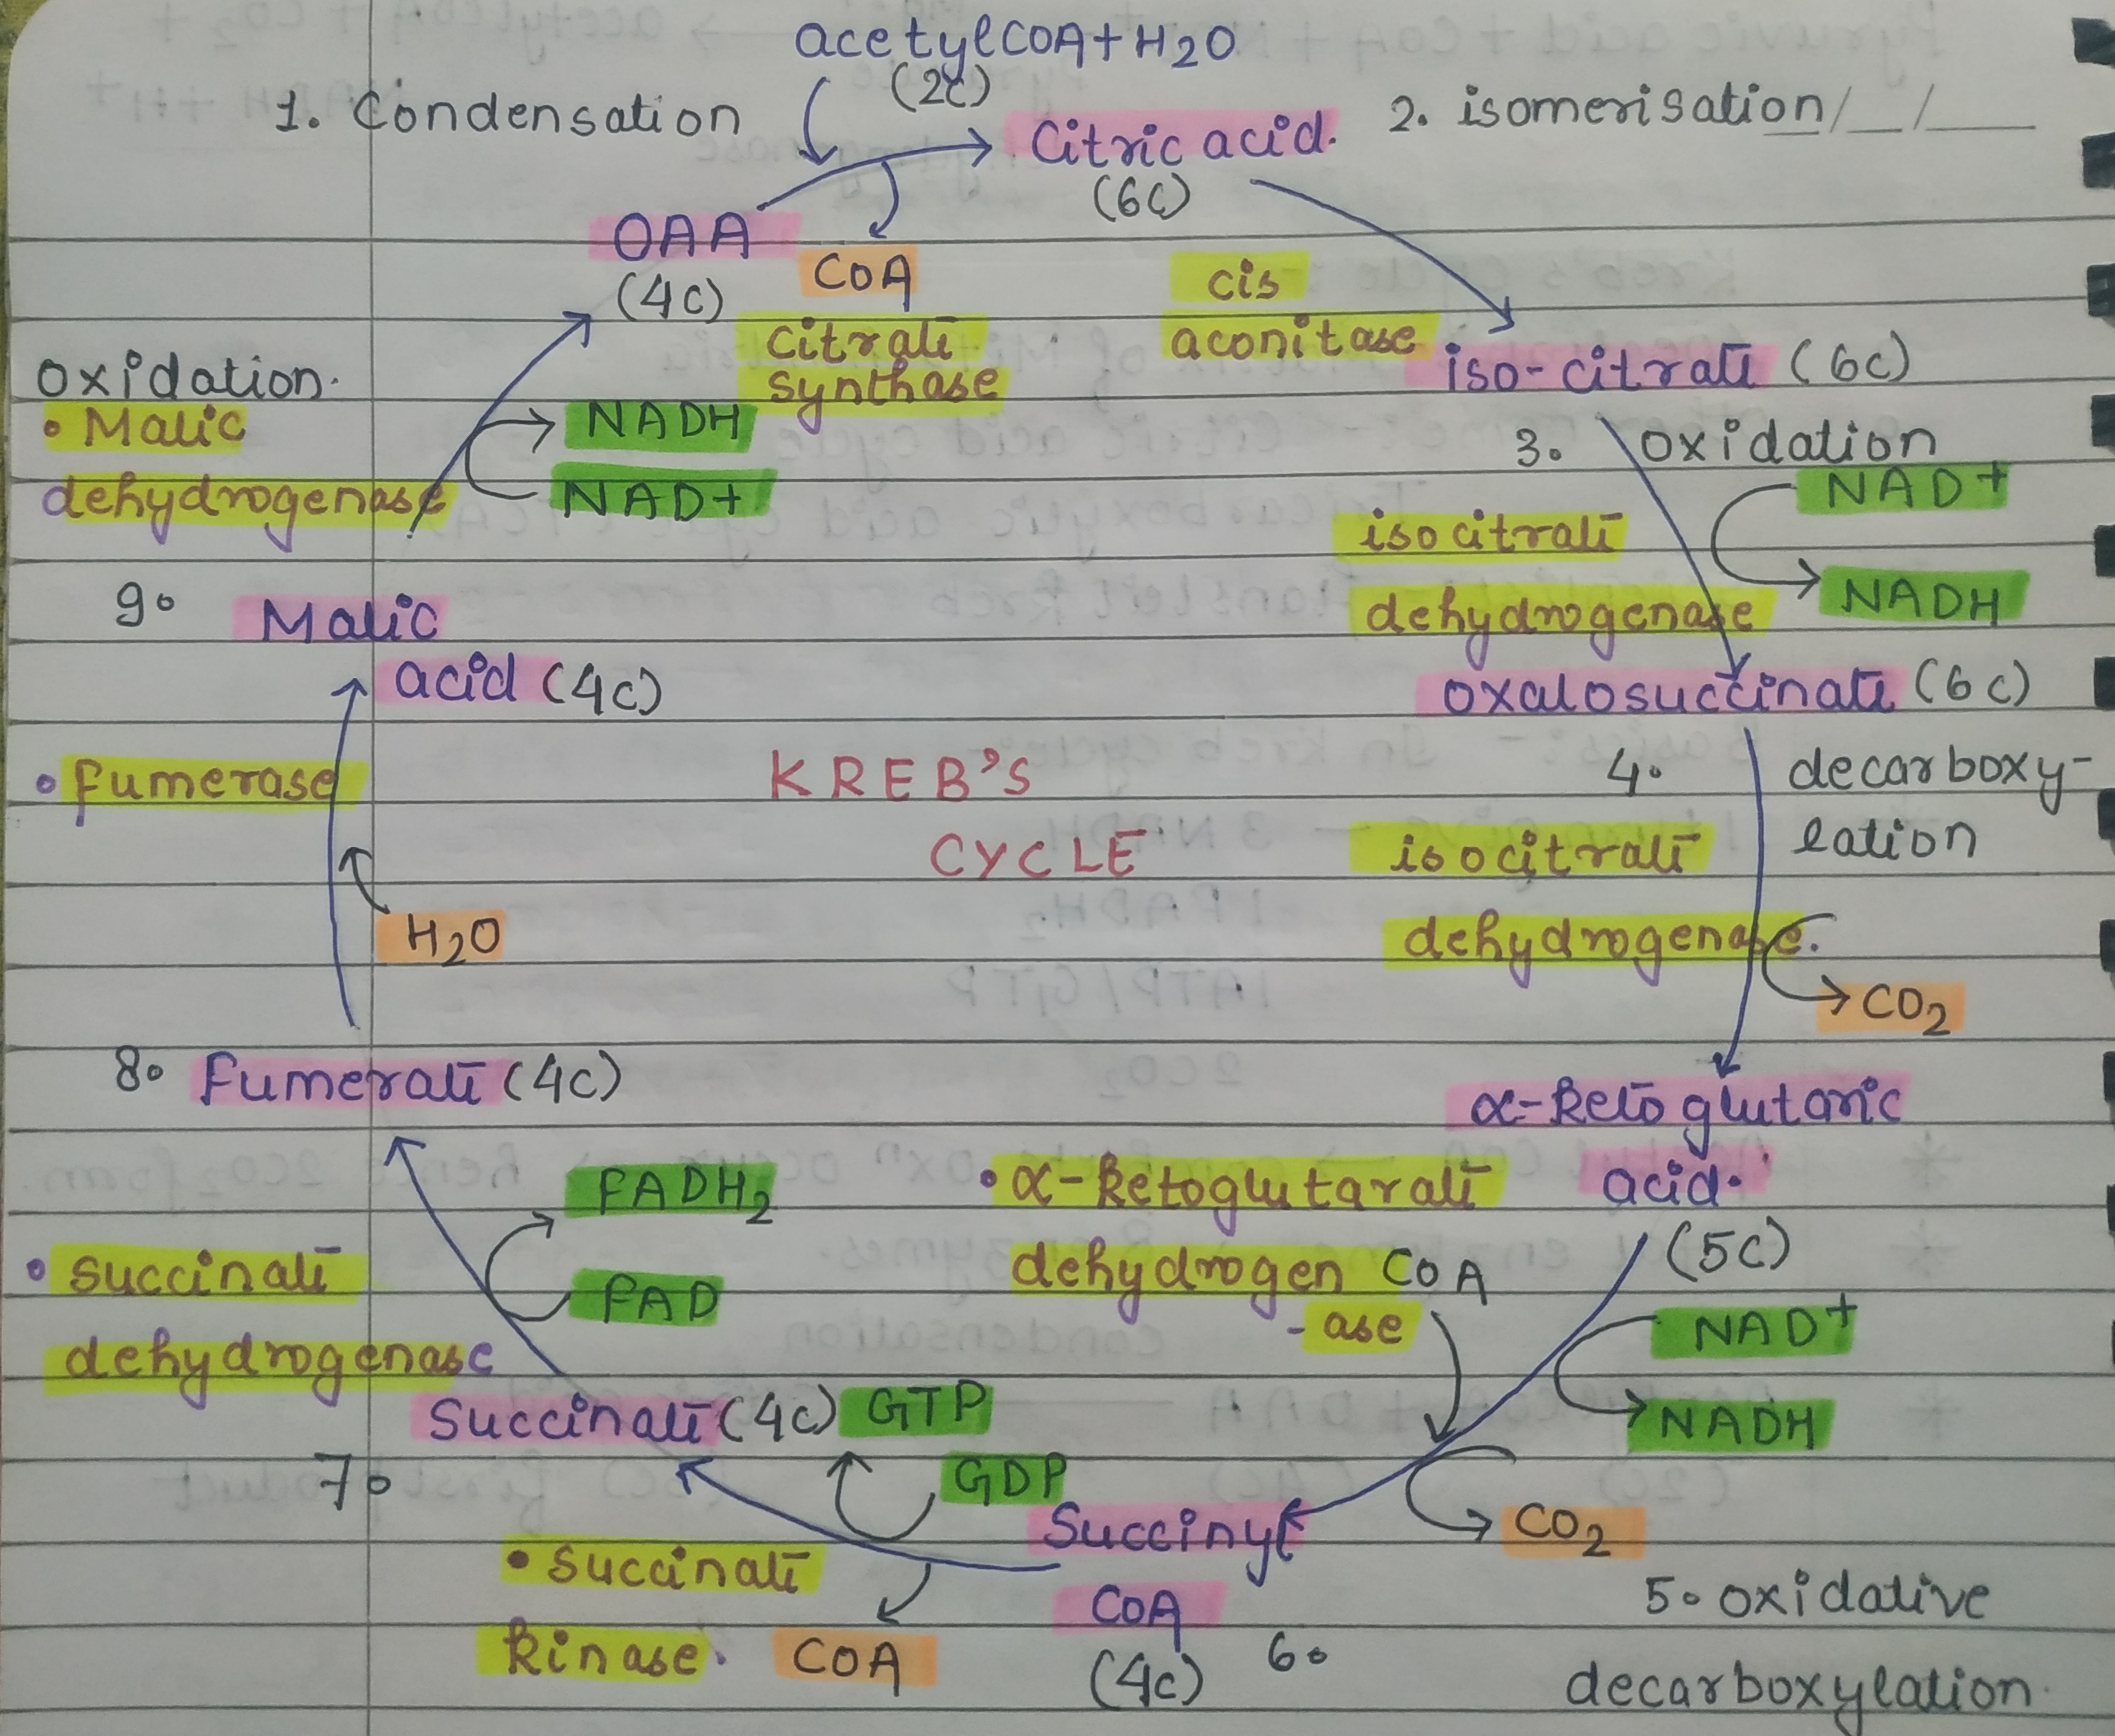 acetylCOA+H2O
(2C)
1. Condensation
Citric acid.
(6C)
2. isomerisation
OAA
(4C)
COA
Citrate
synthase
cis
aconitase
iso-citrate (6C)
oxidation.
• Malic
dehydrogenase
NADH
NAD+
3. oxidation
NAD+
NADH
isocitrate
dehydrogenase
oxalosuccinate (6C)
9. Malic
acid (4C)
• fumerase
H2O
KREB'S
CYCLE
4. decarboxy-
lation
isocitrate
dehydrogenase.
CO2
8. Fumerate (4C)
α-Keto glutaric
acid.
(5C)
FADH2
FAD
• α-Ketoglutarate
dehydrogen
-ase
COA
NAD+
NADH
• Succinate
dehydrogenase
Succinate (4C)
7.
GTP
GDP
Succinyl
COA
(4C)
CO2
• Succinate
Kinase.
COA
6.
5. oxidative
decarboxylation.